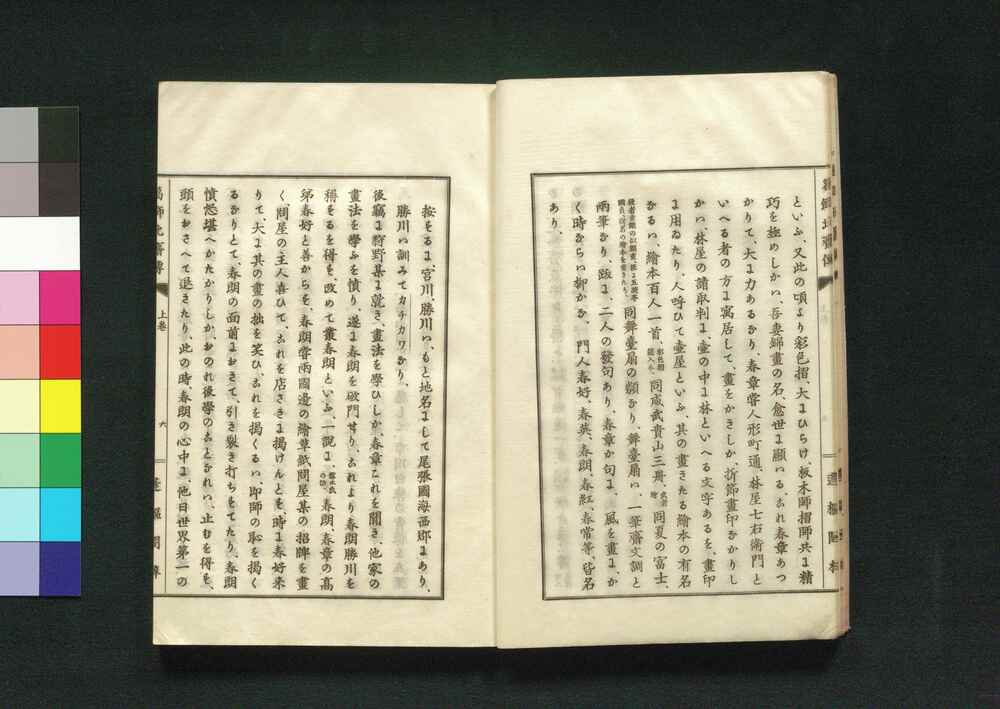 といふ、又此の頃より彩色摺、大にひらけ板木師摺師共に精
巧を極めしかバ、吾妻錦畫の名、愈世に顯ハる、これ春章あつ
かりて、大に力あるなり、春章嘗人形町通、林屋七右衛門と
いへる者の方に寓居して、畫をかきしか、折節畫印なかりし
かバ、林屋の請取判に、壺の中に林といへる文字あるを、畫印
に用ゐたり、人呼ひて壺屋といふ、其の畫きたる繪本の有名
なるハ、繪本百人一首、彩色摺箱入本、同威武貴山三冊、武者繪同夏の富士、
同舞臺扇の類なり、舞臺扇ハ、一筆齋文調と
兩筆なり、跋に、二人の發句あり、春章か句に、風を畫に、か
く時からハ柳かな、門人春好、春英、春朗、春紅、春常等、皆名
あり、
按するに、宮川、勝川ハ、もと地名にして尾張國海西郡にあり、
勝川ハ訓みてカチカワなり、
後竊に狩野某に就き、畫法を學ひしか、春章これを聞き、他家の
畫法を學ふを憤り、遂に春朗を破門せり、これより春朗勝川を
稱するを得す、改めて叢春朗といふ、一説に、露木氏の話、春朗、春章の高
弟春好と善からす、春朗嘗兩國邊の繪草紙問屋某の招牌を畫
く、問屋の主人喜ひて、これを店さきに揭けんとす、時に春好來
りて、大に其の畫の拙を笑ひ、これを揭くるハ、即師の恥を揭く
るなりとて、春朗の面前におきて、引き裂き打ちすてたり、春朗
憤怒堪へかたかりしか、おのれ後學のことなれハ、止むを得す、
頭をおさへて退きたり、此の時、春朗の心中に、他日世界第一の
葛飾北齋傳
上卷
六